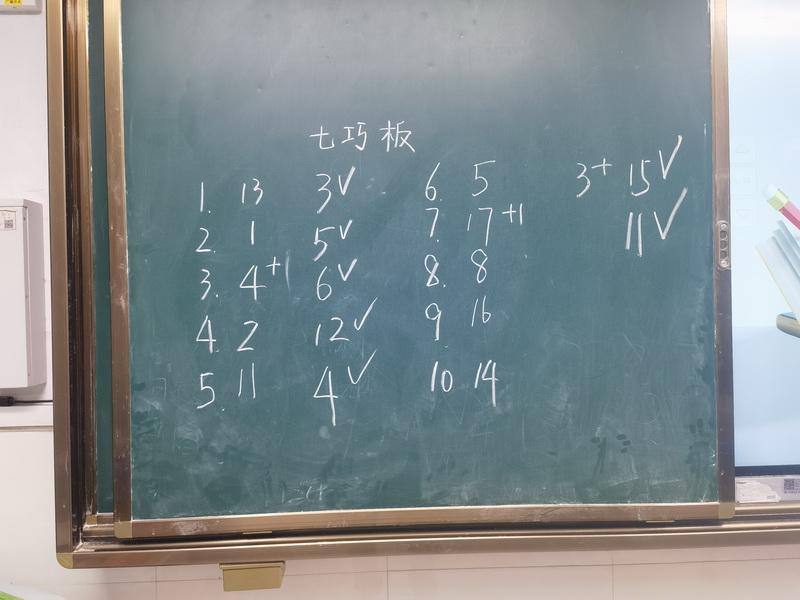 七巧板
1. 13 3✓ 6. 5 3+ 15✓
2. 1 5✓ 7. 17+1 11✓
3. 4+1 6✓ 8. 8
4. 2 12✓ 9 16
5. 11 4✓ 10 14